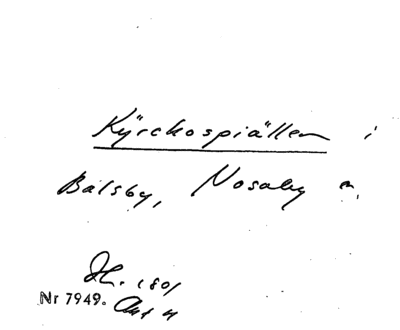 Kÿrckospiällen i
Balsby, Nosaby
1801
Nr 7949.